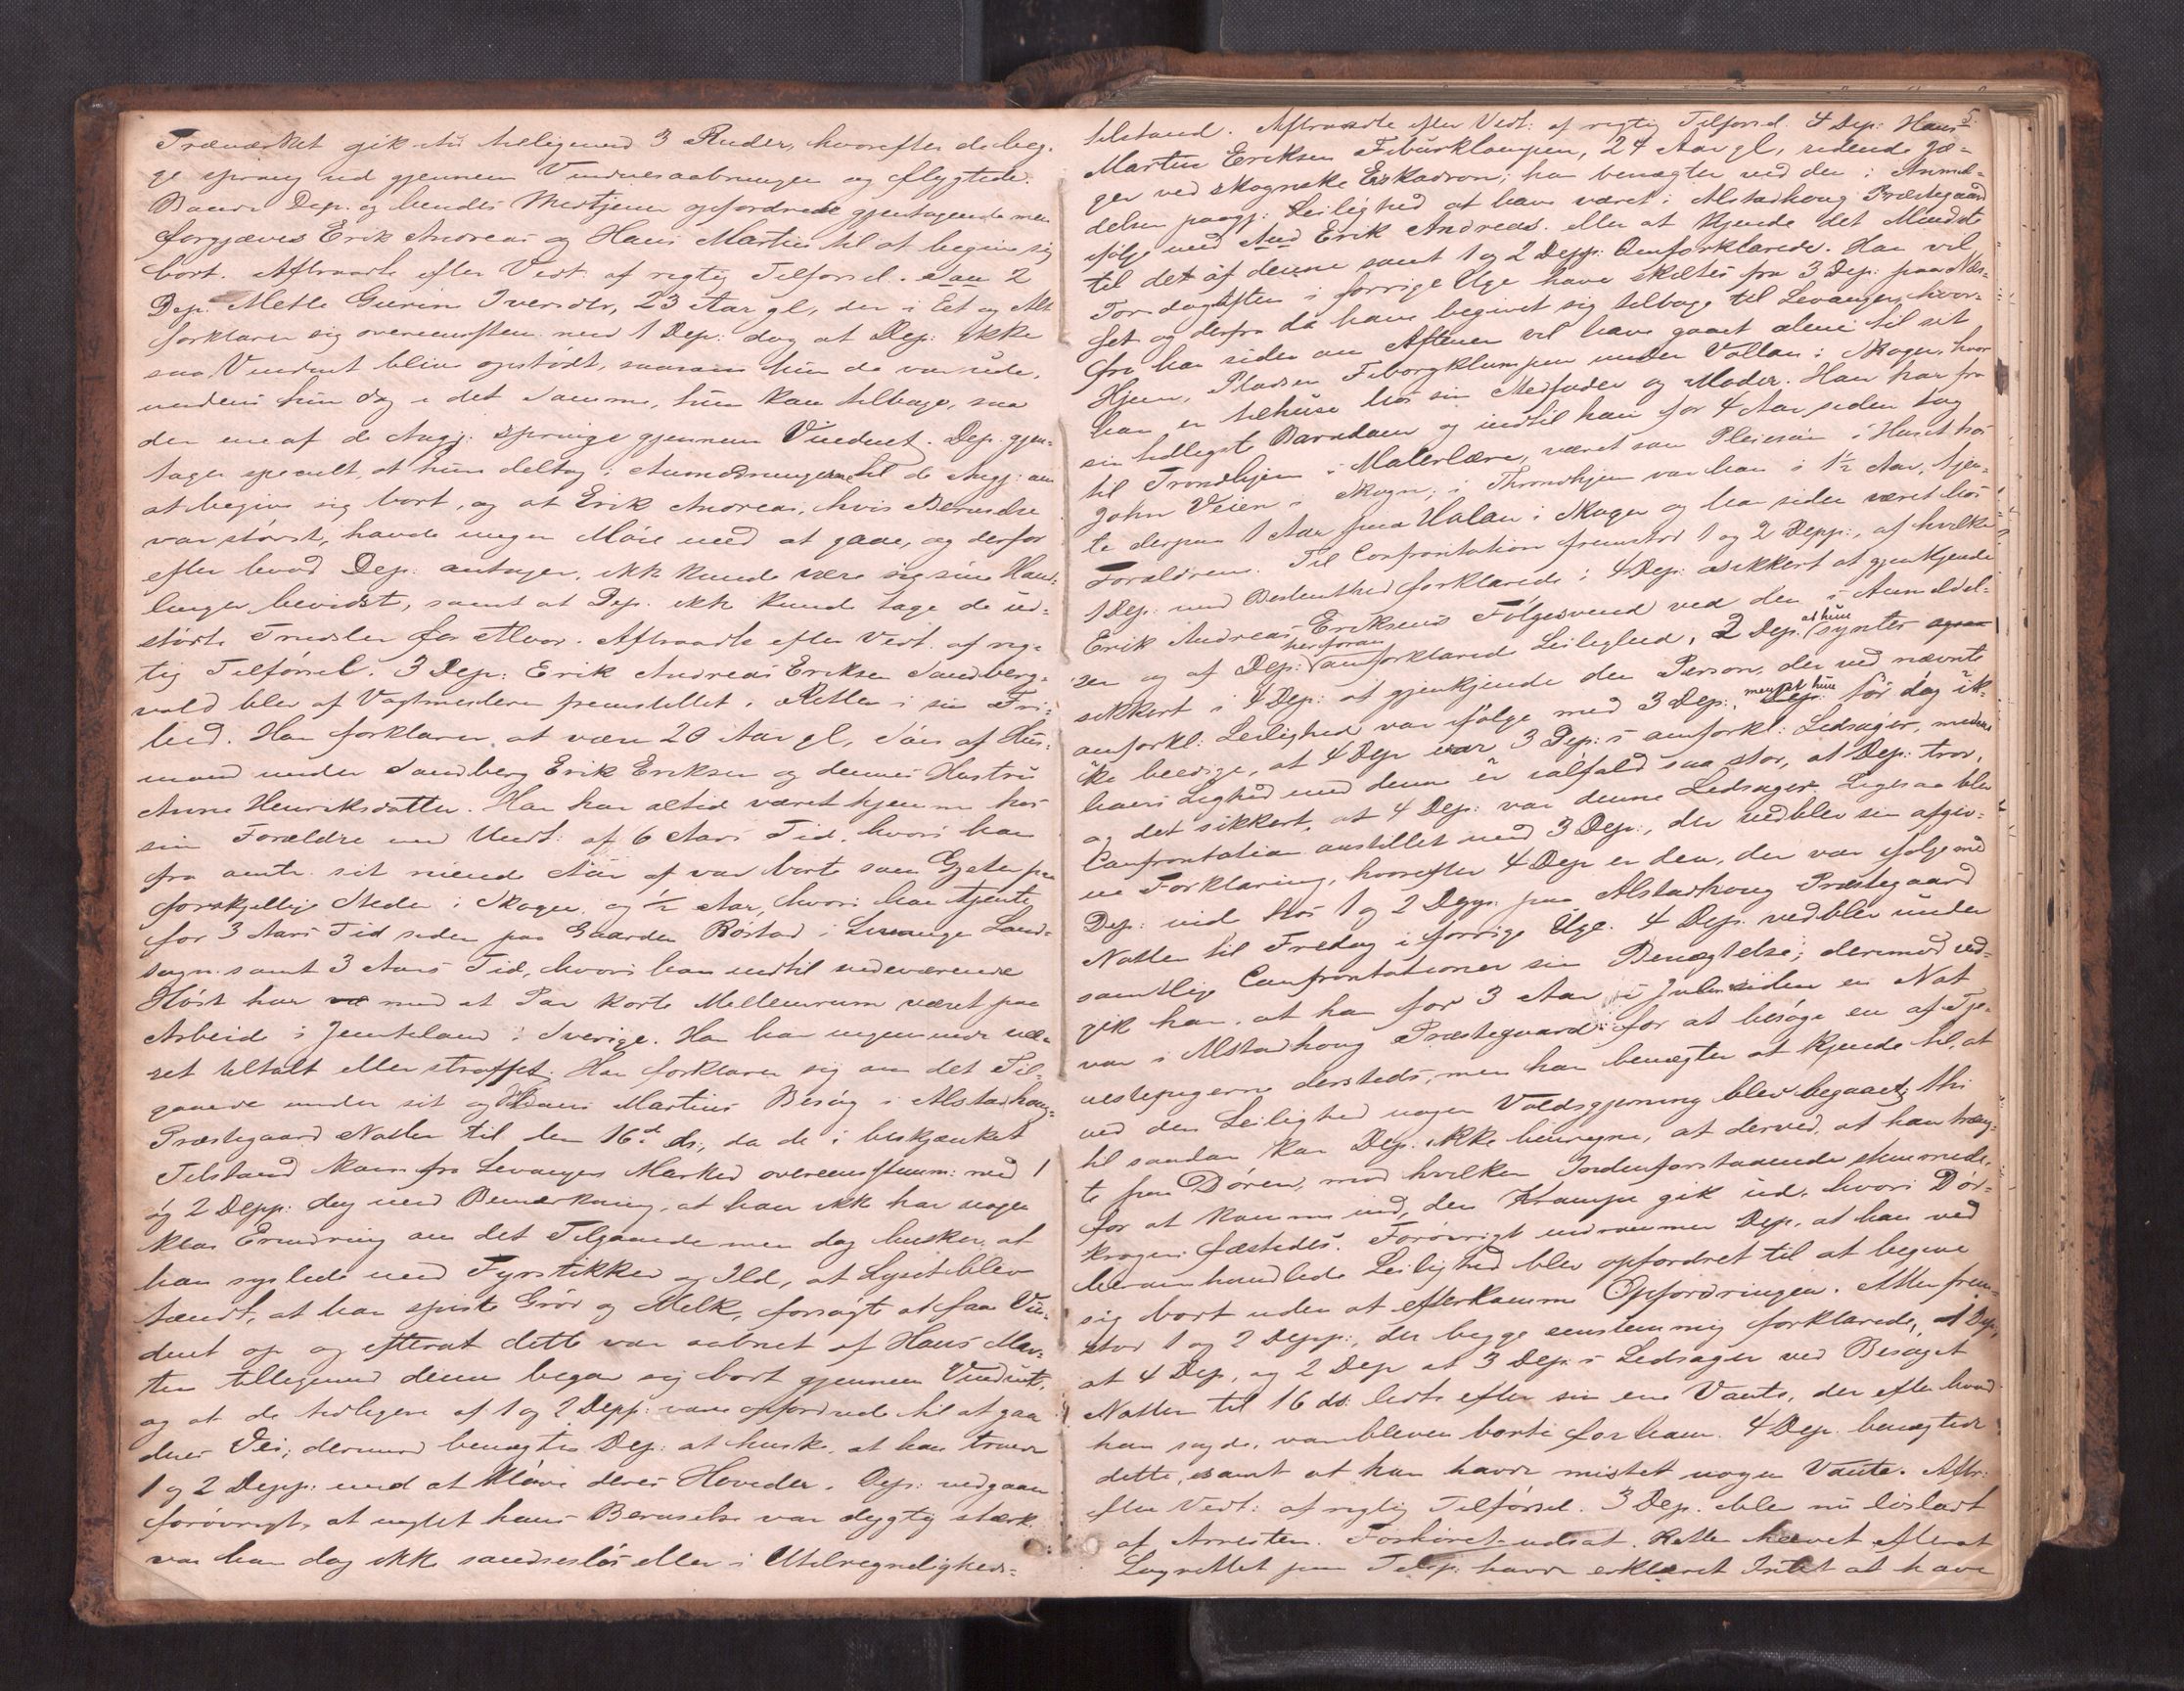 Træværket gik itu tilligemed 3 Ruder, hvorefter de beg-
ge sprang ud gjennem Vinduesaabningen og flygtede.
Baade Dep. og hendes Medtjener opfordrede gjentagende men
forgjæves Erik Andreas og Hans Martin til at begive sig
bort. Aftraadte efter Vedt: af rigtig Tilførsel. 2
Dep: Mette Gurine Iversdtr, 23 Aar gl, der i Et og Alt
forklarer sig overensstem. med 1 Dep: dog at Dep: ikke
saa Vinduet blive opstødt, saasom hun da var ude,
medens hun dog i det Samme, hun kom tilbage, saa
den ene af de Angj: springe gjennem Vinduet. Dep. gjen-
tager specielt, at hun deltog i Anmodningerne til de Angj: om
at begive sig bort, og at Erik Andreas, hvis Beruselse
var størst, havde megen Møie med at gaae, og derfor
efter hvad Dep: antager, ikke kunde være sig sine Hand-
linger bevidst, samt at Dep. ikke kunde tage de ud-
stødte Trudsler for Alvor. Aftraadte efter Vedt. af rig-
tig Tilførsel. 3 Dep: Erik Andreas Eriksen Sandberg-
vald blev af Vagtmesteren fremstillet i Retten i sin Fri-
hed. Han forklarer at være 20 Aar gl, Søn af Hus-
mand under Sandberg Erik Eriksen og dennes Hustru
Anne Henriksdatter. Han har altid været hjemme hos
sine Forældre med Undt: af 6 Aars Tid, hvori han
fra omtr. sit niende Aar af var borte som Gjeter paa
forskjellige Steder i Skogn, og ½ Aar, hvori han tjente
for 3 Aars Tid siden paa Gaarden Røstad i Levanger Land-
sogn samt 3 Aars Tid, hvori han indtil indeværende
Høst har med et Par korte Mellemrum været paa
Arbeide i Jemteland i Sverige. Han har ingensinde væ-
ret tiltalt eller straffet. Han forklarer sig om det Til-
gaaede under sit og Hans Martins Besøg i Alstadhoug
Præstegaard Natten til den 16de ds, da de i beskjænket
Tilstand kom fra Levangers Marked overensstemm: med 1
og 2 Depp: dog med Bemærkning, at han ikke har nogen
klar Erindring om det Tilgaaede men dog husker, at
han syslede med Fyrstikker og Ild, at Lyset blev
tændt, at han spiste Grød og Melk, forsøgte at faa Vin-
duet op og efterat dette var aabnet af Hans Mar-
tin tilligemed denne begav sig bort gjennem Vinduet,
og at de tidligere af 1 og 2 Depp: vare opfordrede til at gaa
deres Vei; dermod benægter Dep: at huske, at han truede
1 og 2 Depp: med at kløve deres Hoveder. Dep: vedgaar
forøvrigt, at uagtet hans Beruselse var dygtig stærk
var han dog ikke sandsesløs eller i Utilregnelighed-
5.
tilstand. Aftraadte efter Vedt: af rigtig Tilførsel. 4 Dep: Hans
Martin Eriksen Fiburklumpen, 24 Aar gl, ridende Jæ-
ger ved skognske Eskadron; han benægter ved den i Anmel-
delsen paagj: Leilighed at have været i Alstadhoug Præstegaard
ifølge med Erik Andreas eller at kjende det Mindste
til det af denne samt 1 og 2 Depp: Omforklarede. Han vil
Torsdagaften i forrige Uge have skiltes fra 3 Dep: paa Næs-
set og derfra da have begivet sig tilbage til Levanger, hvor-
fra han siden om Aftenen vil have gaaet alene til sit
Hjem, Pladsen Fiborgklumpen under Vollan i Skogn, hvor
han er tilhuse hos sin Stedfader og Moder. Han har fra
sin tidligste Barndom og indtil han for 4 Aar siden tog
til Trondhjem i Malerlære, været som Pleiesøn i Huset hos
John Veien i Skogn; i Throndhjem var han i 1½ Aar, tjen-
te derpaa 1 Aar paa Halan i Skogn og har siden været hos
Forældrene. Til Confrontation fremstod 1 og 2 Depp:, af hvilke
1 Dep: med Bestemthed forklarede i 4 Dep: sikkert at gjenkjende
Erik Andreas Eriksens Følgesvend ved den i Anmeldel-
sen og af Dep: herforan omforklarede Leilighed, 2 Dep. at hun syntes
sikkert i 4 Dep: at gjenkjende den Person, der ved nævnte
omforkl: Leilighed var ifølge med 3 Dep:, men at hun tør dog ik-
ke beedige, at 4 Dep var 3 Dep:s omforkl: Ledsager, medens
hans Lighed med denne er ialfald saa stor, at Dep: tror,
og det sikkert, at 4 Dep: var denne Ledsager. Ligesaa blev
Confrontation anstillet med 3 Dep:, der vedblev sin afgiv-
ne Forklaring, hvorefter 4 Dep er den, der var ifølge med
Dep: inde hos 1 og 2 Depp: paa Alstadhoug Præstegaard
Natten til Fredag i forrige Uge. 4 Dep. vedblev under
samtlige Confrontationer sin Benægtelse; derimod ved-
gik han, at han for 3 Aar i Julen siden en Nat
var i Alstadhoug Præstegaard for at besøge en af Tje-
nestepigerne dersteds, men han benægter at kjende til, at
ved den Leilighed nogen Voldsgjerning blev begaaet; thi
til saadan kan Dep: ikke henregne, at derved, at han tryk-
te paa Døren, mod hvilken Indenforstaaende stemmede,
for at komme ind, den Krampe gik ud, hvori Dør-
krogen fæstedes. Forøvrigt indrømmer Dep. at han ved
heromhandlede Leilighed blev opfordret til at begive
sig bort uden at efterkomme Opfordringen. Atter frem-
stod 1 og 2 Depp:, der begge eenstemmig forklarede, 1 Dep,
at 4 Dep, og 2 Dep at 3 Dep:s Ledsager ved Besøget
Natten til 16 ds: ledte efter sin ene Vante, der efter hvad
han sagde, var bleven borte for ham. 4 Dep. benægter
dette, samt at han havde mistet nogen Vante. Aftr:
efter Vedt: af rigtig Tilførsel. 3 Dep. blev nu løsladt
af Arresten. Forhøret udsat. Retten hævet efterat
Lagrettet paa Tilsp: havde erklæret Intet at have